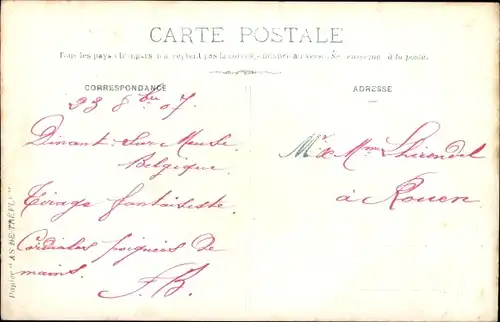 CARTE POSTALE
Tous les pays étrangers n'acceptent pas la correspondance au verso. Se renseigner à la poste.
CORRESPONDANCE
ADRESSE
23 8bre 07
Dinant sur Meuse
Belgique.
Tirage fantaisiste.
Cordiales poignées de
mains.
J.B.
Mr & Mme
à Rouen
Papier "AS DE TRÈFLE"